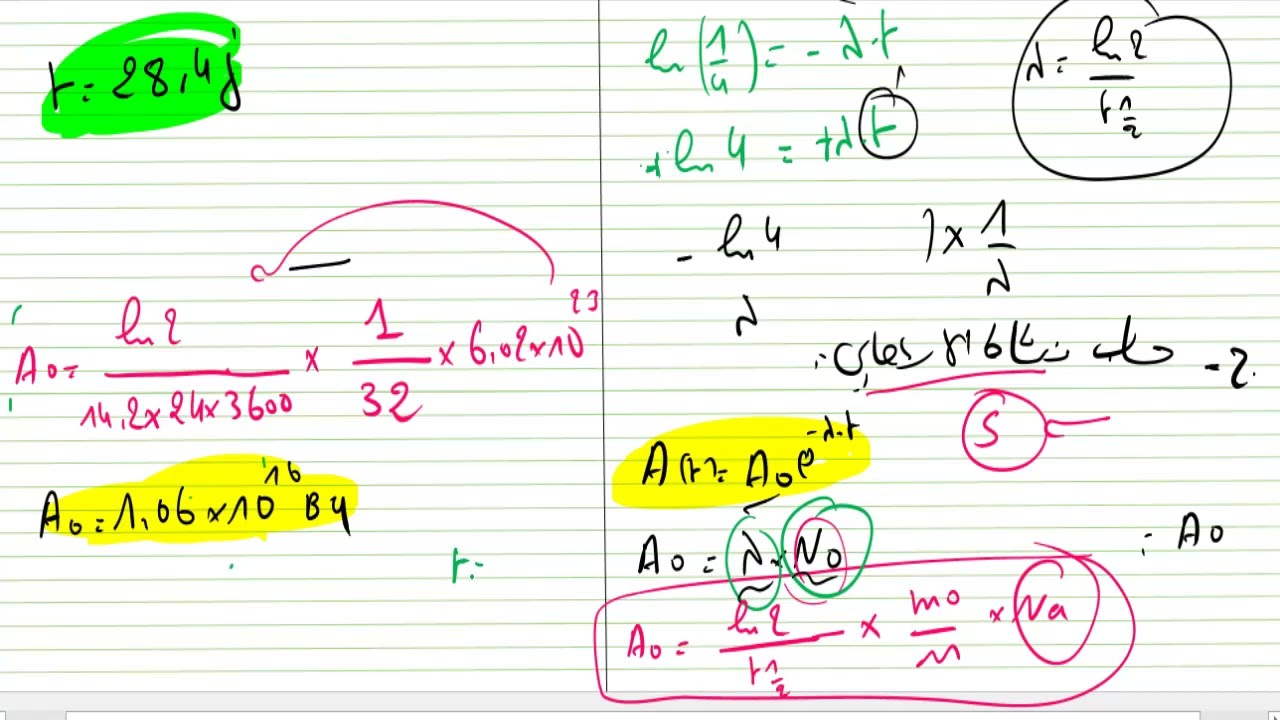 t = 28,4 j
A0 = ln 2 / 14,2 x 24 x 3600 x 1 / 32 x 6,02 x 10^23
A0 = 1,06 x 10^16 Bq
t =
ln(1/4) = - λ.t
+ ln 4 = + λ.t
λ = ln 2 / t 1/2
- ln 4 / λ
) x 1 / λ
2 -
S
A(t) = A0 e^-λ.t
A0 = λ x N0
: A0
A0 = ln 2 / t 1/2 x m0 / M x Na